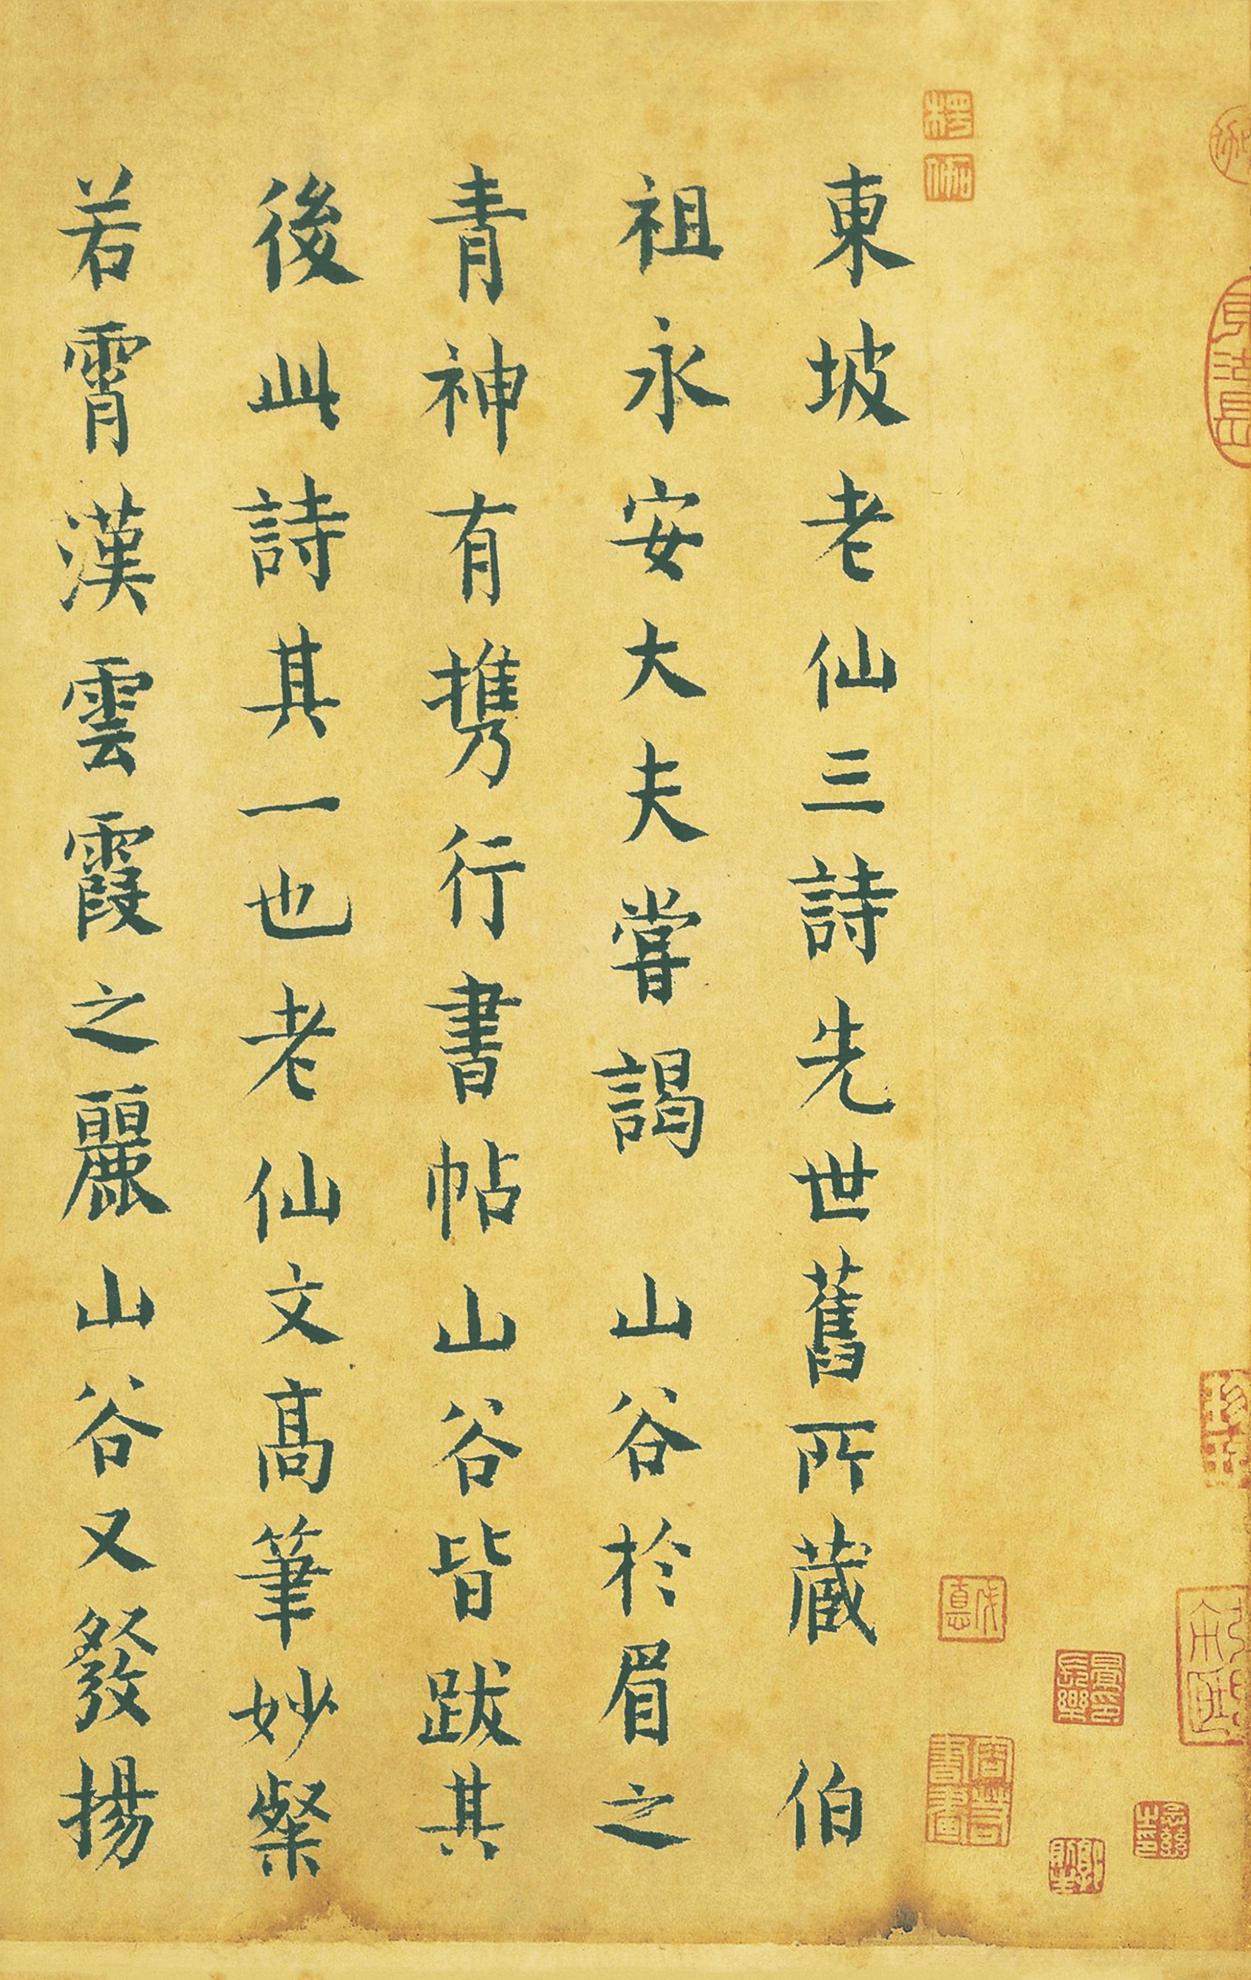 東坡老仙三詩先世舊所藏 伯
祖永安大夫嘗謁 山谷於眉之
青神有攜行書帖山谷皆跋其
後此詩其一也老仙文高筆妙粲
若霄漢雲霞之麗山谷又發揚
楞伽